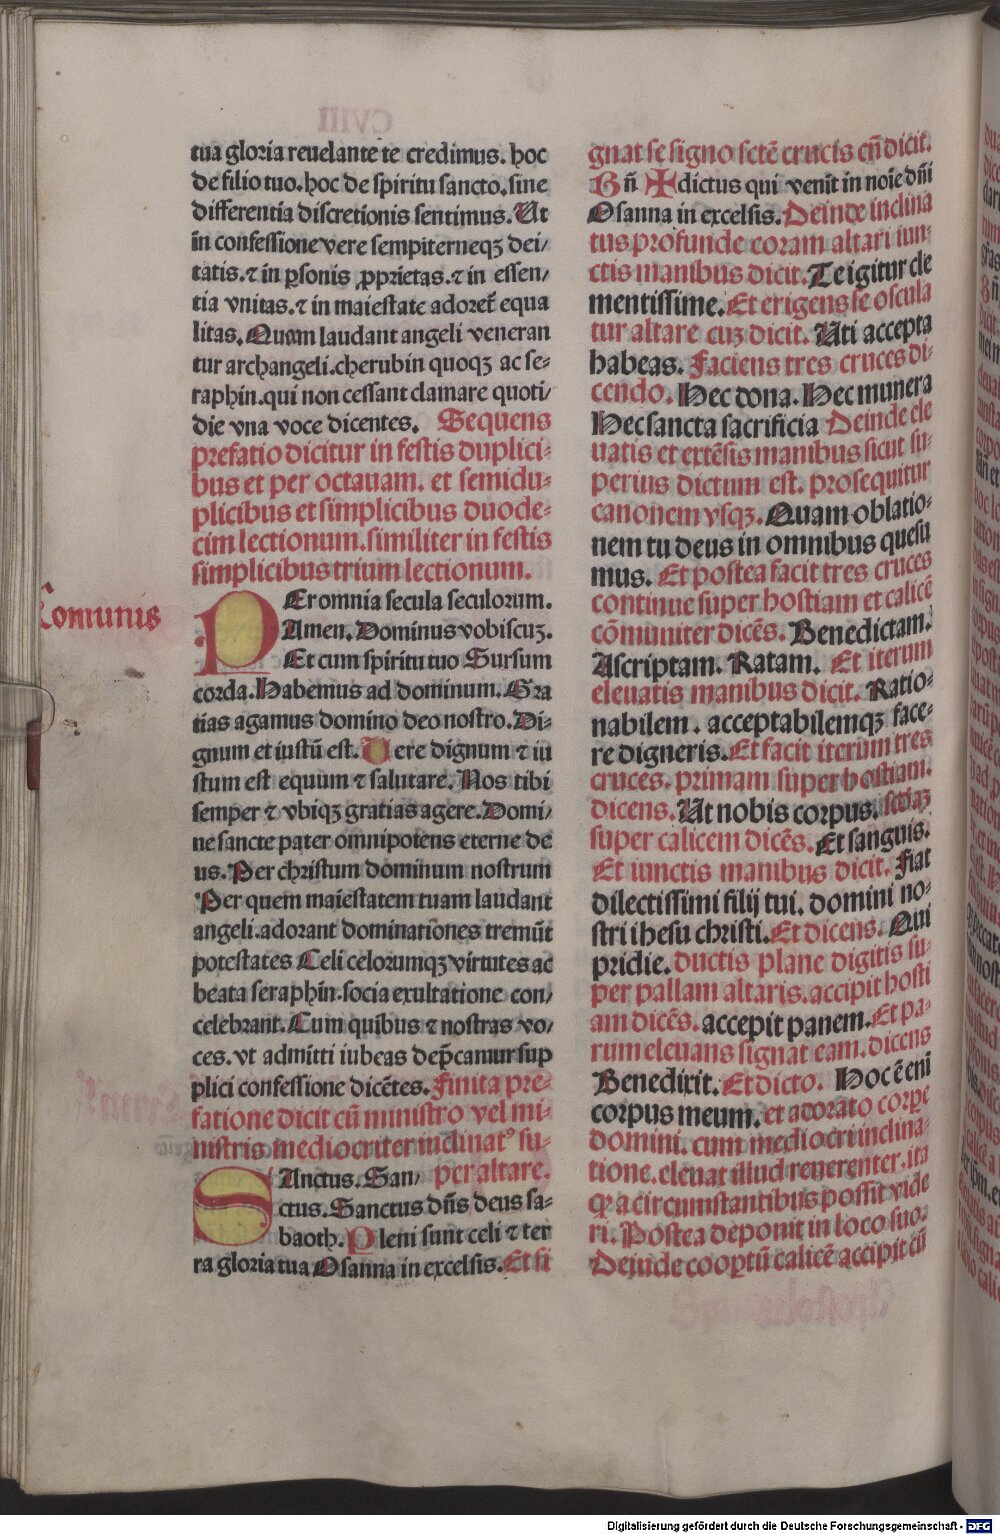 tua gloria reuelante te credimus. hoc
de filio tuo. hoc de spiritu sancto. sine
differentia discretionis sentimus. Ut
in confessione vere sempiterneqꝫ dei/
tatis. ⁊ in ꝑsonis ꝓprietas. ⁊ in essen/
tia vnitas. ⁊ in maiestate adoret᷑ equa
litas. Quam laudant angeli veneran
tur archangeli. cherubin quoqꝫ ac se-
raphin. qui non cessant clamare quoti/
die vna voce dicentes. Sequens
prefatio dicitur in festis duplici-
bus et per octauam. et semidu-
plicibus et simplicibus duode-
cim lectionum. similiter in festis
simplicibus trium lectionum.
Comunis
PEr omnia secula seculorum.
Amen. Dominus vobiscuꝫ.
Et cum spiritu tuo Sursum
corda. Habemus ad dominum. Gra
tias agamus domino deo nostro. Di-
gnum et iustū est. Uere dignum ⁊ iu
stum est equum ⁊ salutare. Nos tibi
semper ⁊ vbiqꝫ gratias agere. Domi/
ne sancte pater omnipotens eterne de
us. Per christum dominum nostrum
Per quem maiestatem tuam laudant
angeli. adorant dominationes tremūt
potestates Celi celorumqꝫ virtutes ac
beata seraphin. socia exultatione con/
celebrant. Cum quibus ⁊ nostras vo/
ces. vt admitti iubeas dep̄camur sup
plici confessione dicētes. Finita pre-
fatione dicit cū ministro vel mi-
nistris mediocriter inclinatꝰ su-
per altare.
SAnctus. San/
ctus. Sanctus dn̄s deus sa-
baoth. Pleni sunt celi ⁊ ter
ra gloria tua Osanna in excelsis. Et si
gnat se signo sctē crucis cū dicit.
Bn̄ ✠ dictus qui venit in noīe dn̄i
Osanna in excelsis. Deinde inclina
tus profunde coram altari iun-
ctis manibus dicit. Te igitur cle
mentissime. Et erigens se oscula
tur altare cuꝫ dicit. Uti accepta
habeas. Faciens tres cruces di-
cendo. Hec dona. Hec munera
Hec sancta sacrificia Deinde ele
uatis et extēsis manibus sicut su-
perius dictum est. prosequitur
canonem vsqꝫ. Quam oblatio-
nem tu deus in omnibus quesu
mus. Et postea facit tres cruces
continue super hostiam et calicē
cōmuniter dicēs. Benedictam.
Ascriptam. Ratam. Et iterum
eleuatis manibus dicit. Ratio-
nabilem. acceptabilemqꝫ face-
re digneris. Et facit iterum tres
cruces. primam super hostiam.
dicens. Ut nobis corpus. scdaꝫ
super calicem dicēs. Et sanguis.
Et iunctis manibus dicit. Fiat
dilectissimi filij tui. domini no-
stri ihesu christi. Et dicens. Qui
pridie. ductis plane digitis su-
per pallam altaris. accipit hosti
am dicēs. accepit panem. Et pa-
rum eleuans signat eam. dicens
Benedixit. Et dicto. Hoc ē enī
corpus meum. et adorato corpe
domini. cum mediocri inclina-
tione. eleuat illud reuerenter. ita
qꝫ a circumstantibus possit vide
ri. Postea deponit in loco suo.
Deinde cooptū calicē accipit cū
Digitalisierung gefördert durch die Deutsche Forschungsgemeinschaft - DFG